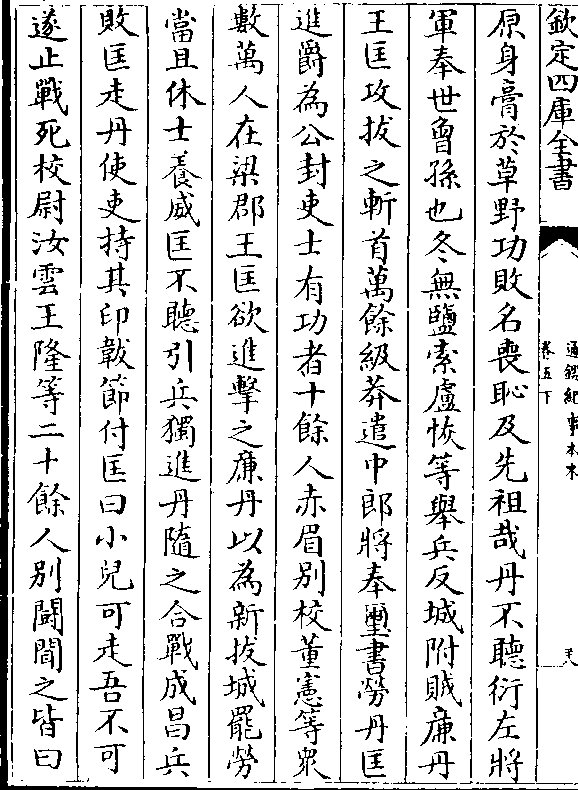 欽定四庫全書
通鑑紀事本末
卷五下
原身膏於草野功敗名喪恥及先祖哉丹不聽衍左將
軍奉世曾孫也冬無鹽索盧恢等舉兵反城附賊亷丹
王匡攻拔之斬首萬餘級莽遣中郎將奉璽書勞丹匡
進爵為公封吏士有功者十餘人赤眉别校董憲等衆
數萬人在梁郡王匡欲進擊之亷丹以為新拔城罷勞
當且休士養威匡不聽引兵獨進丹隨之合戰成昌兵
敗匡走丹使吏持其印韍節付匡曰小兒可走吾不可
遂止戰死校尉汝雲王隆等二十餘人别鬬聞之皆曰